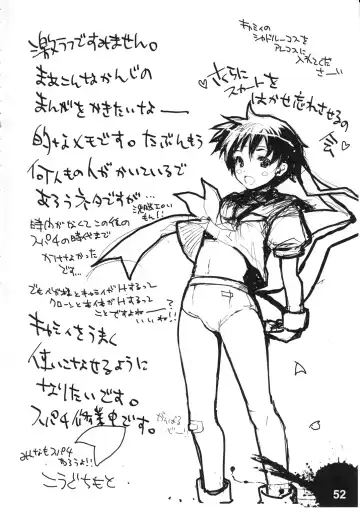 激ラフですみません。
まあこんなかんじの
まんがをかきたいなー
的なメモです。たぶんもう
何人もの人がかいているで
あろうネタですが…
時間がなくてこの後の
スパ4の時代まで
かけなかった
です…
キャミィをうまく
使いこなせるように
なりたいです。
スパ4修業中です。
みんなもスパ4
やろうよ!!
こうどもと
がんばるぞー!
キャミィの
シャドルーコスを
アレコスに
入れてくだ
さーい
さくらに
スカートを
はかせ忘れさせるの
会
52